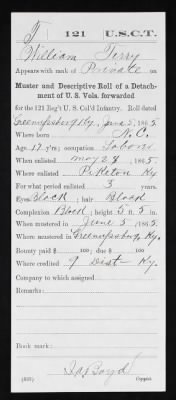 T | 121 | U.S.C.T.
William Terry
Appears with rank of Private on
Muster and Descriptive Roll of a Detachment
of U. S. Vols. forwarded
for the 121 Reg't U. S. Col'd Infantry. Roll dated
Greenupsburg Ky, June 5, 1865.
Where born N.C.
Age 17 y'rs; occupation Laborer
When enlisted May 28, 1865.
Where enlisted Piketon Ky
For what period enlisted 3 years.
Eyes Black; hair Black
Complexion Black; height 5 ft. 5 in.
When mustered in June 5, 1865.
Where mustered in Greenupsburg, Ky.
Bounty paid $ 100; due $ 100
Where credited 9 Dist Ky.
Company to which assigned
Remarks:
Book mark:
Boyd
(339) Copyist.